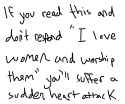 If you read this and
don't respond "I love
women and worship
them" you'll suffer a
sudden heart attack